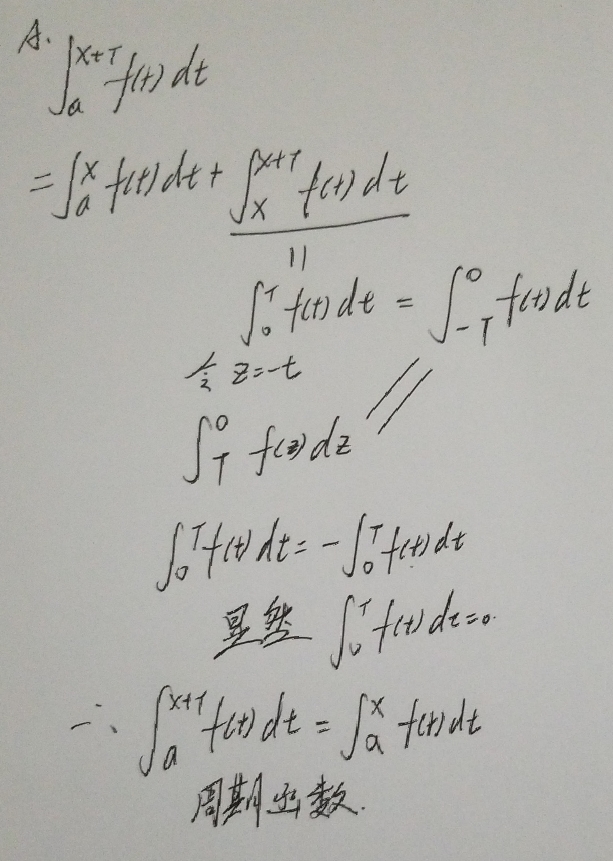 A.
∫ₐˣ⁺ᵀ f(t) dt
= ∫ₐˣ f(t) dt + ∫ₓˣ⁺ᵀ f(t) dt
||
∫₀ᵀ f(t) dt = ∫₋ᵀ⁰ f(t) dt
令 z=-t
∫ᴛ⁰ f(z) dz //
∫₀ᵀ f(t) dt = -∫₀ᵀ f(t) dt
显然 ∫₀ᵀ f(t) dt = 0.
∴ ∫ₐˣ⁺ᵀ f(t) dt = ∫ₐˣ f(t) dt
周期函数.